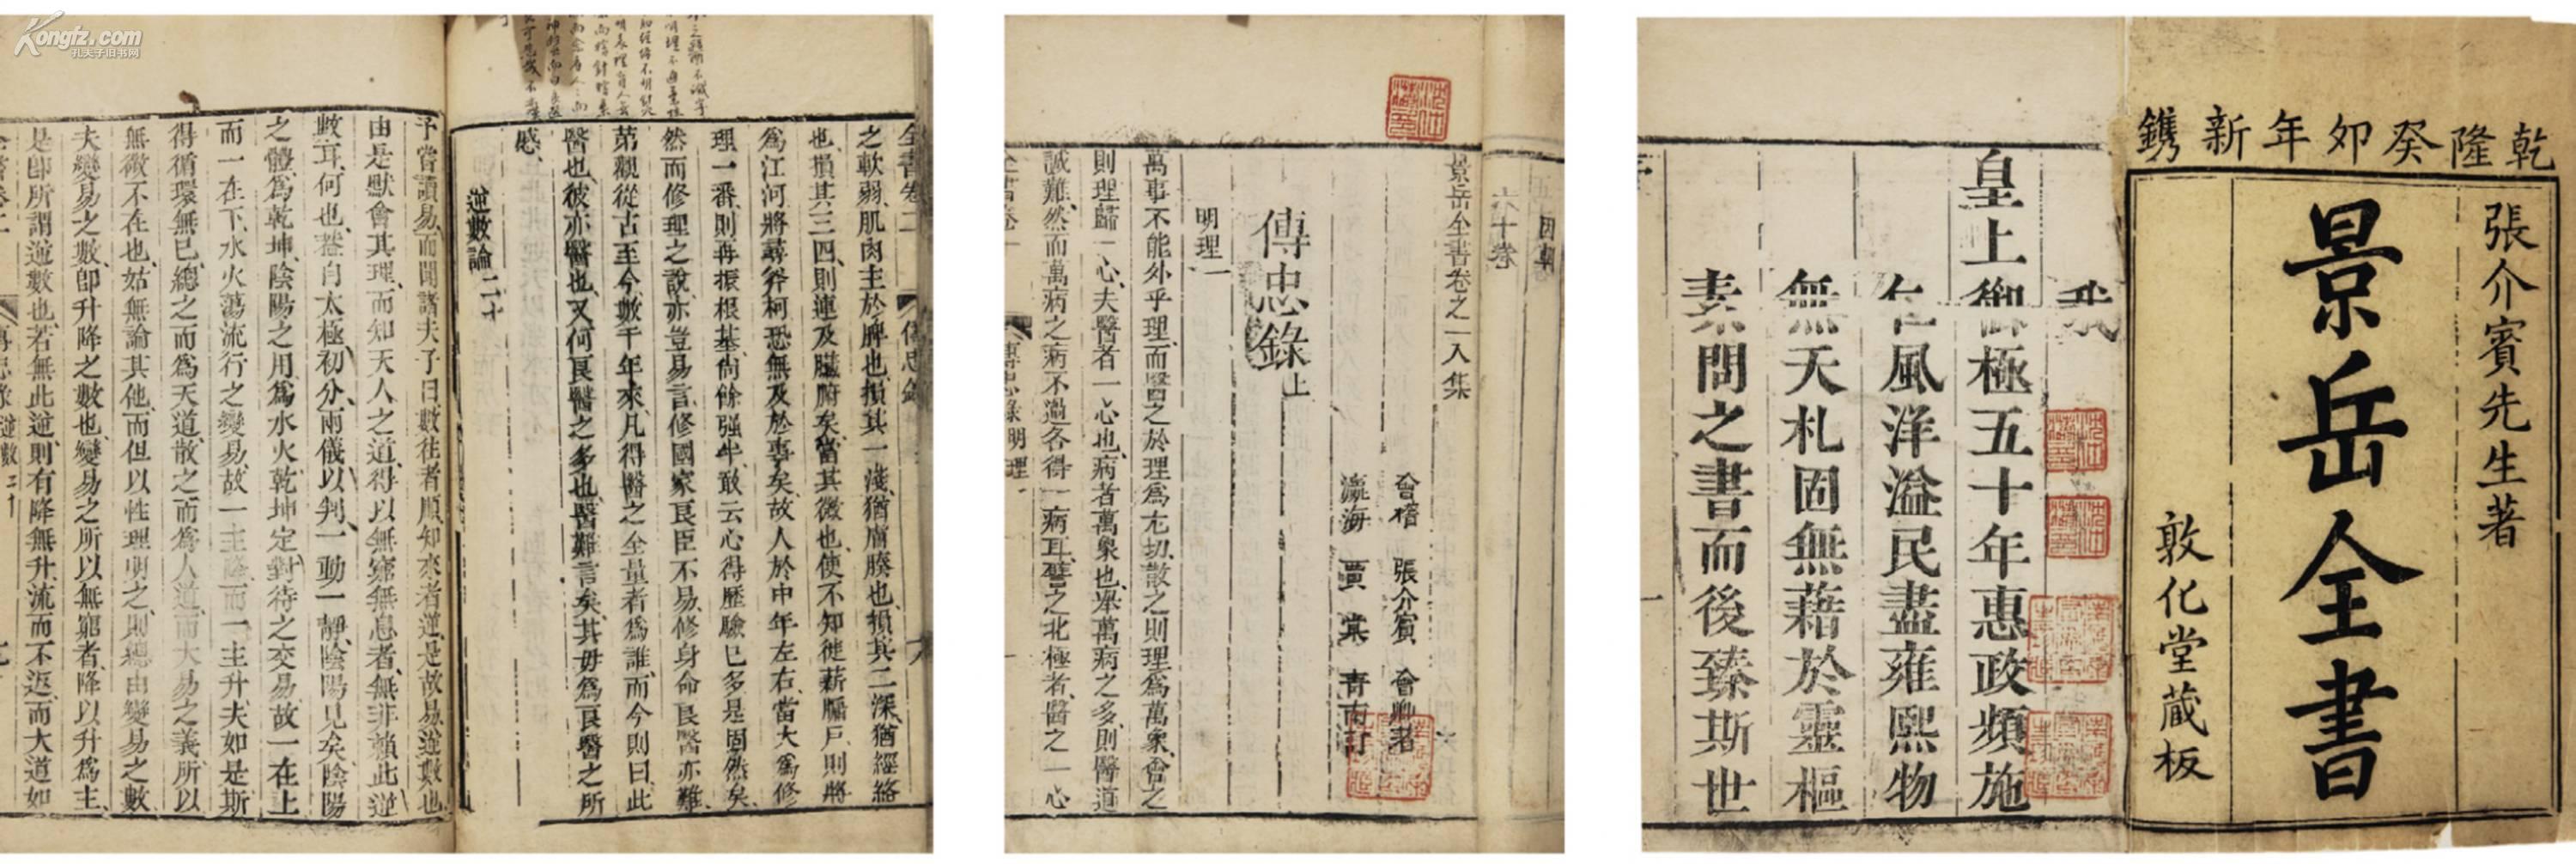 Kongfz.com
孔夫子旧书网
全書卷二
之軟弱肌肉主於脾也損其一淺猶膚腠也損其二深猶經絡
也損其三四則連及臟腑矣當其微也使不知徙薪牖戶則將
為江河將尋斧柯恐無及於事矣故人於中年左右當大為修
理一番則再振根基尚餘强半敢云心得歷驗已多是固然矣
然而修理之說亦豈易言修國家良臣不易修身命良醫亦難
第觀從古至今數千年來凡得醫之全量者為誰而今則曰此
醫也彼亦醫也又何良醫之多也醫難言矣其毋為良醫之所
惑
逆數論二十
予嘗讀易而聞諸夫子曰數往者順知來者逆是故易逆數也
由是默會其理而知天人之道得以無窮無息者無非賴此逆
數耳何也蓋自太極初分兩儀以判一動一靜陰陽見矣陰陽
之體為乾坤陰陽之用為水火乾坤定對待之交易故一在上
而一在下水火蕩流行之變易故一主降而一主升夫如是斯
得循環無已總之而為天道散之而為人道而大易之義所以
無微不在也姑無論其他而但以性理明之則總由變易之數
夫變易之數即升降之數也變易之所以無窮者降以升為主
是即所謂逆數也若無此逆則有降無升流而不返而大道如
六十卷
景岳全書卷之一入集
會稽 張介賓 會卿著
瀛海 賈棠 青南訂
傳忠錄上
明理一
萬事不能外乎理而醫之於理為尤切散之則理為萬象會之
則理歸一心夫醫者一心也病者萬象也舉萬病之多則醫道
誠難然而萬病之病不過各得一病耳譬之北極者醫之一心
全書卷一 傳忠錄 明理 一
乾隆癸卯年新鐫
張介賓先生著
景岳全書
敦化堂藏板
我
皇上御極五十年惠政頻施
仁風洋溢民盡雍熙物
無夭札固無藉於靈樞
素問之書而後臻斯世